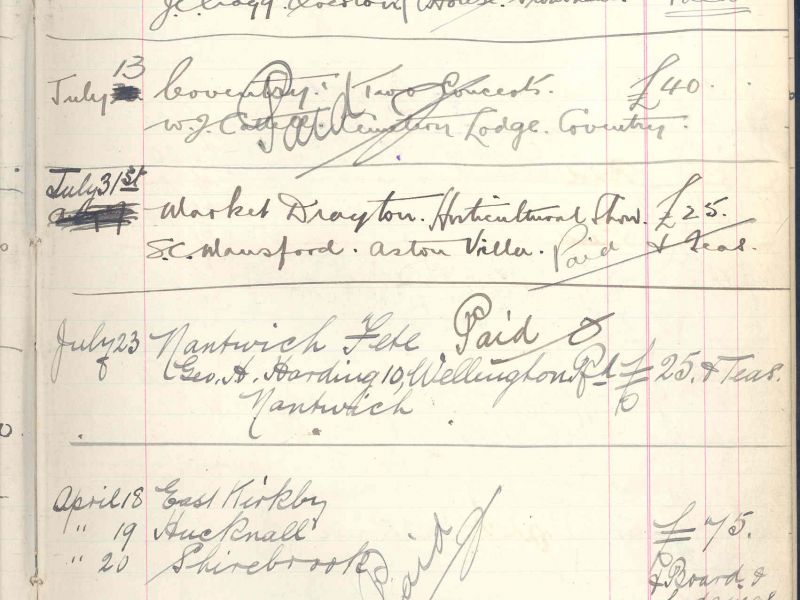 House.
July 13 Coventry. Two Concerts. £40.
Paid
W. J. Lodge. Coventry.
July 31st
Market Drayton. Horticultural Show. £25.
S. C. Mansford. Aston Villa. Paid & Teas.
July 23 Nantwich Fete Paid
8 Geo. H. Harding 10, Wellington Rd £25. & Teas.
Nantwich
April 18 East Kirkby
" 19 Hucknall £75.
" 20 Shirebrook Paid
& Board &